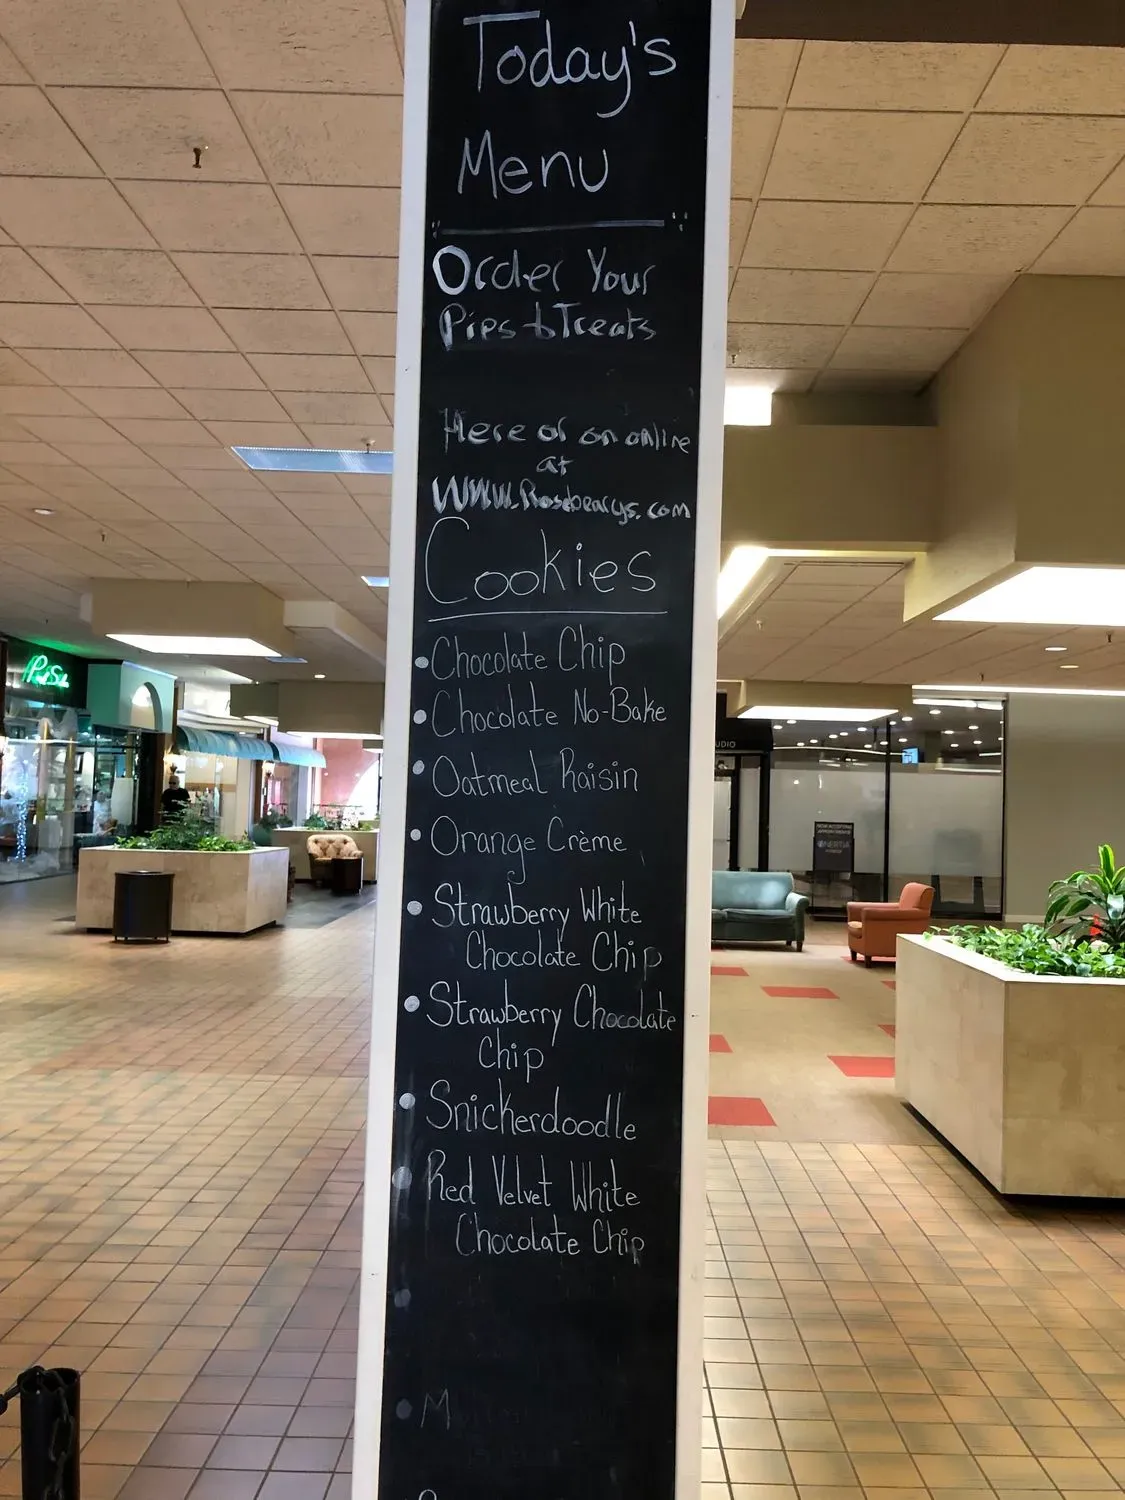 Today's
Menu
Order Your
Pies & Treats
Here or on online
at
WWW.Rosebearys.com
Cookies
• Chocolate Chip
• Chocolate No-Bake
• Oatmeal Raisin
• Orange Crème
• Strawberry White
Chocolate Chip
• Strawberry Chocolate
Chip
• Snickerdoodle
• Red Velvet White
Chocolate Chip
UDIO
NOW ACCEPTING
APPOINTMENTS